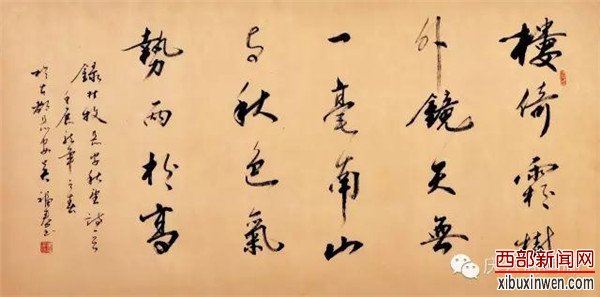 樓倚霜樹
外鏡天無
一毫南山
与秋色氣
勢兩相高
錄杜牧長安秋望詩一首
壬辰年之春
於古都長安
庆
西部新闻网
xibuxinwen.com